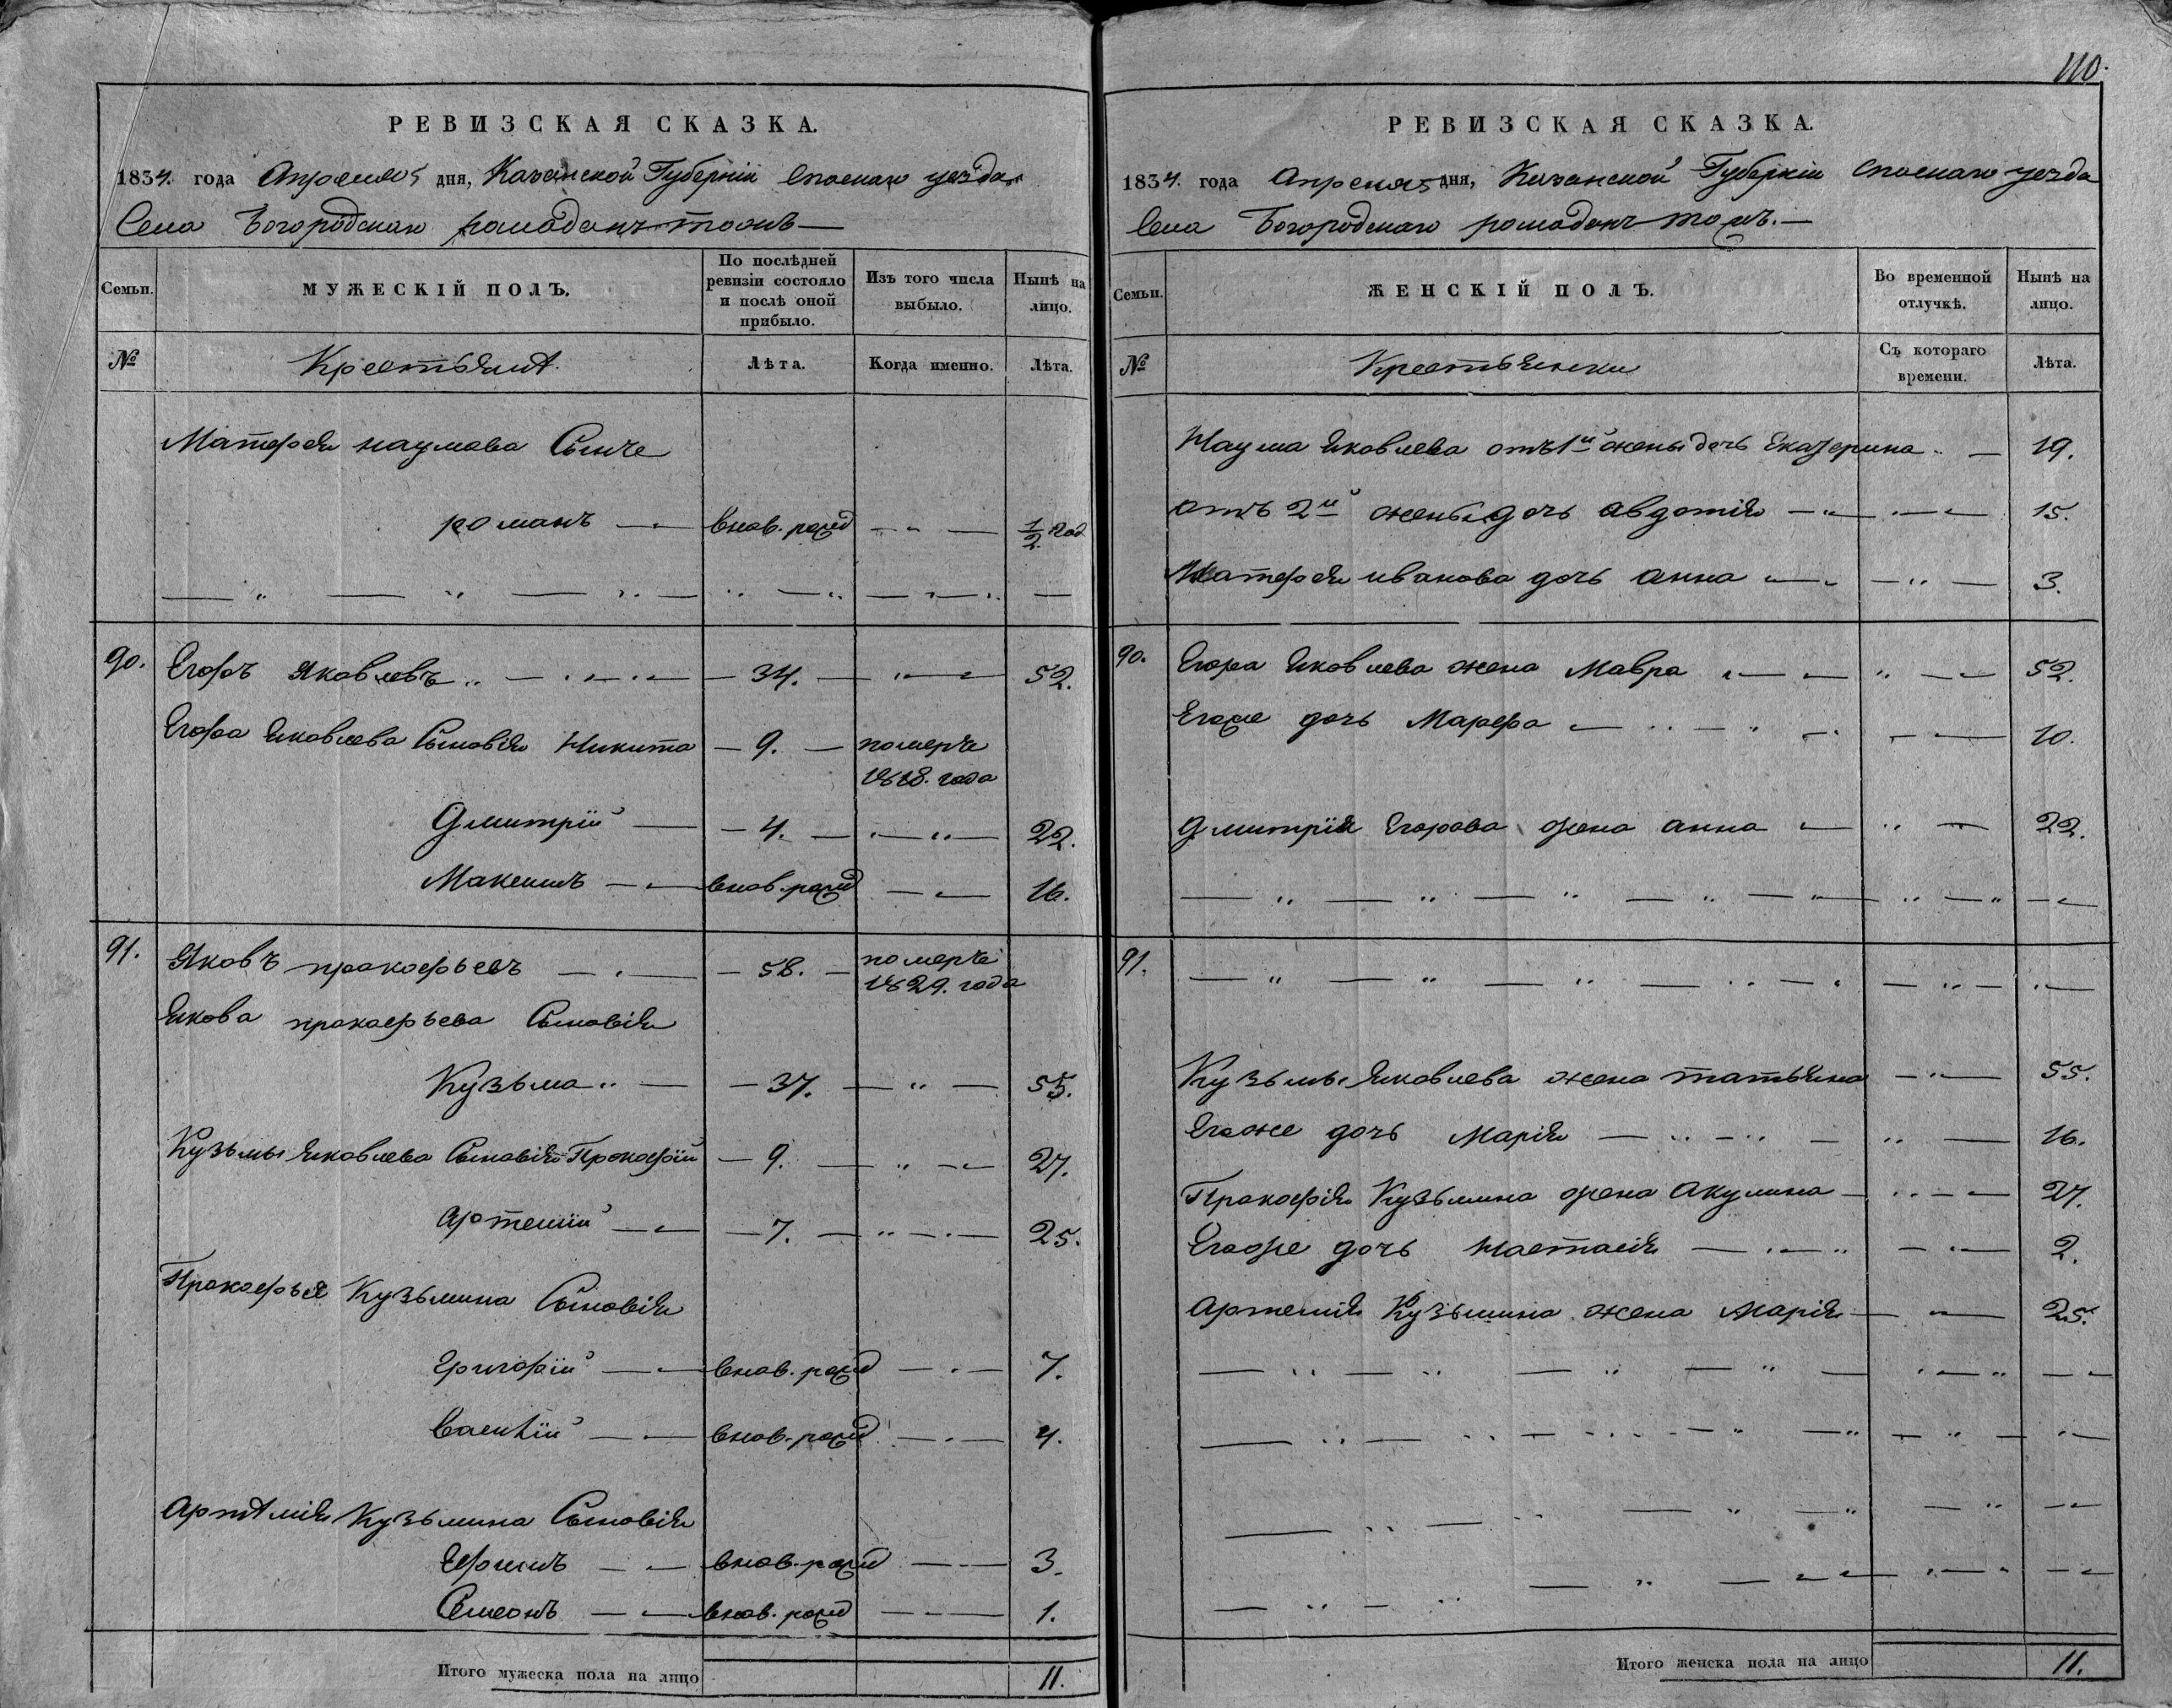 РЕВИЗСКАЯ СКАЗКА.
1834. года Апреля 5 дня, Казанской Губернiи спаскаго уезда
Села Богородскаго ромаданъ тоомъ
Семьи.
МУЖЕСКIЙ ПОЛЪ.
По послѣдней ревизiи состояло и послѣ оной прибыло.
Изъ того числа выбыло.
Нынѣ на лицо.
№
Крестьянѣ.
Лѣта.
Когда именно.
Лѣта.
Матфея наумова Сынъ
романъ внов. рожд 1/2 год
90. Егоръ Яковлевъ 34. 52.
Егора Яковлева Сыновiя Никита 9. померъ
1818. года
Дмитрiй 4. 22.
Максимъ внов. рожд 16.
91. Яковъ прокофьевъ 58. померъ
1829. года
Якова прокофьева Сыновiя
Кузьма 37. 55.
Кузьмы Яковлева Сыновiя Прокофiй 9. 27.
Артемiй 7. 25.
Прокофья Кузьмина Сыновiя
Григорiй внов. рожд 7.
Василiй внов. рожд 4.
Артѣмiя Кузьмина Сыновiя
Ефимъ внов. рожд 3.
Семонъ внов. рожд 1.
Итого мужеска пола на лицо 11.
110.
РЕВИЗСКАЯ СКАЗКА.
1834. года Апреля 5 дня, Казанской Губернiи спаскаго уезда
Села Богородскаго ромаданъ тоомъ.
Семьи.
ЖЕНСКIЙ ПОЛЪ.
Во временной отлучкѣ.
Нынѣ на лицо.
№
Крестьянки
Съ котораго времени.
Лѣта.
Наума Яковлева отъ 1й жены дочь Екатерина 19.
отъ 2й жены дочь авдотiя 15.
Матфея иванова дочь анна 3.
90. Егора Яковлева жена Мавра 52.
Егоже дочь Марфа 10.
Дмитрiя Егорова жена анна 22.
91.
Кузьмы Яковлева жена татьяна 55.
Егоже дочь Марiя 16.
Прокофiя Кузьмина жена Акулина 27.
Егоже дочь настасiя 2.
Артемiя Кузьмина жена Марiя 25.
Итого женска пола на лицо 11.